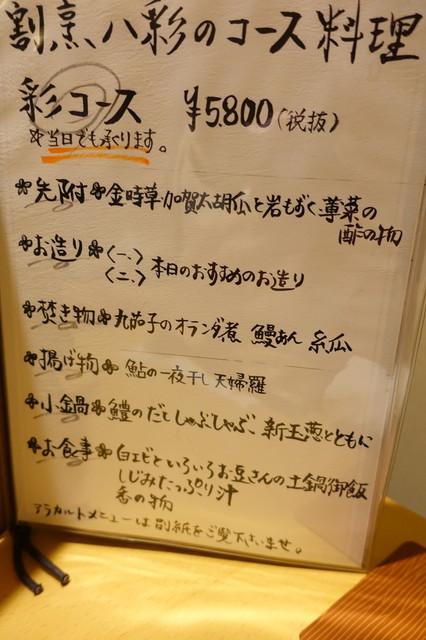 割烹、八彩のコース料理
彩コース ¥5.800(税抜)
※当日でも承ります。
先附 金時草加賀太胡瓜と岩もずく蓴菜の
酢の物
お造り 〈一、〉
〈二、〉本日のおすすめのお造り
焚き物 丸茄子のオランダ煮 鰻あん 糸瓜
揚げ物 鮎の一夜干し天婦羅
小鍋 鱧のだししゃぶしゃぶ 新玉葱とともに
お食事 白エビといろいろお豆さんの土鍋御飯
しじみたっぷり汁
香の物
アラカルトメニューは別紙をご覧下さいませ。